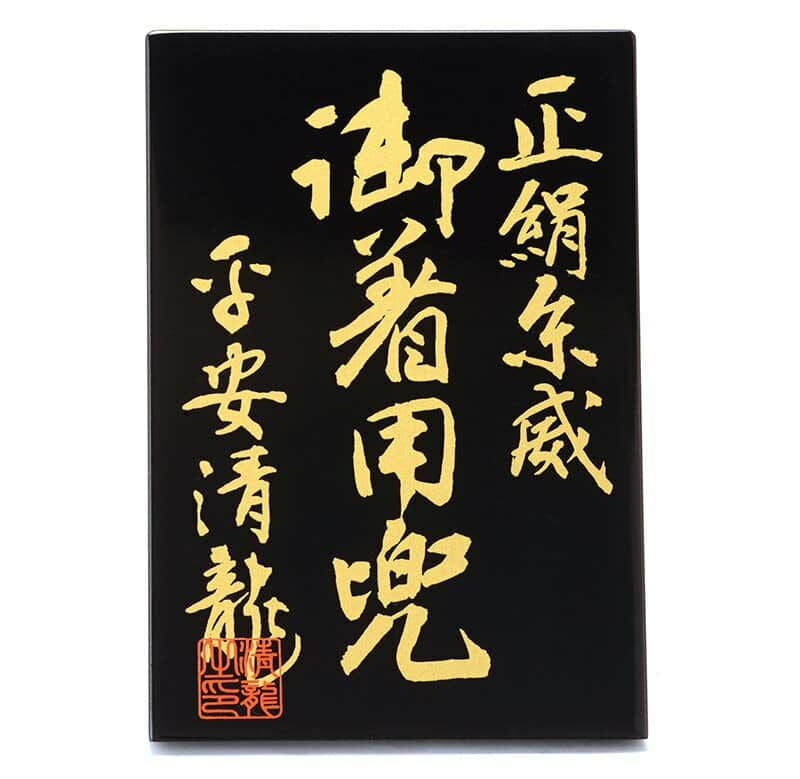 正絹糸威
御着用兜
平安清龍